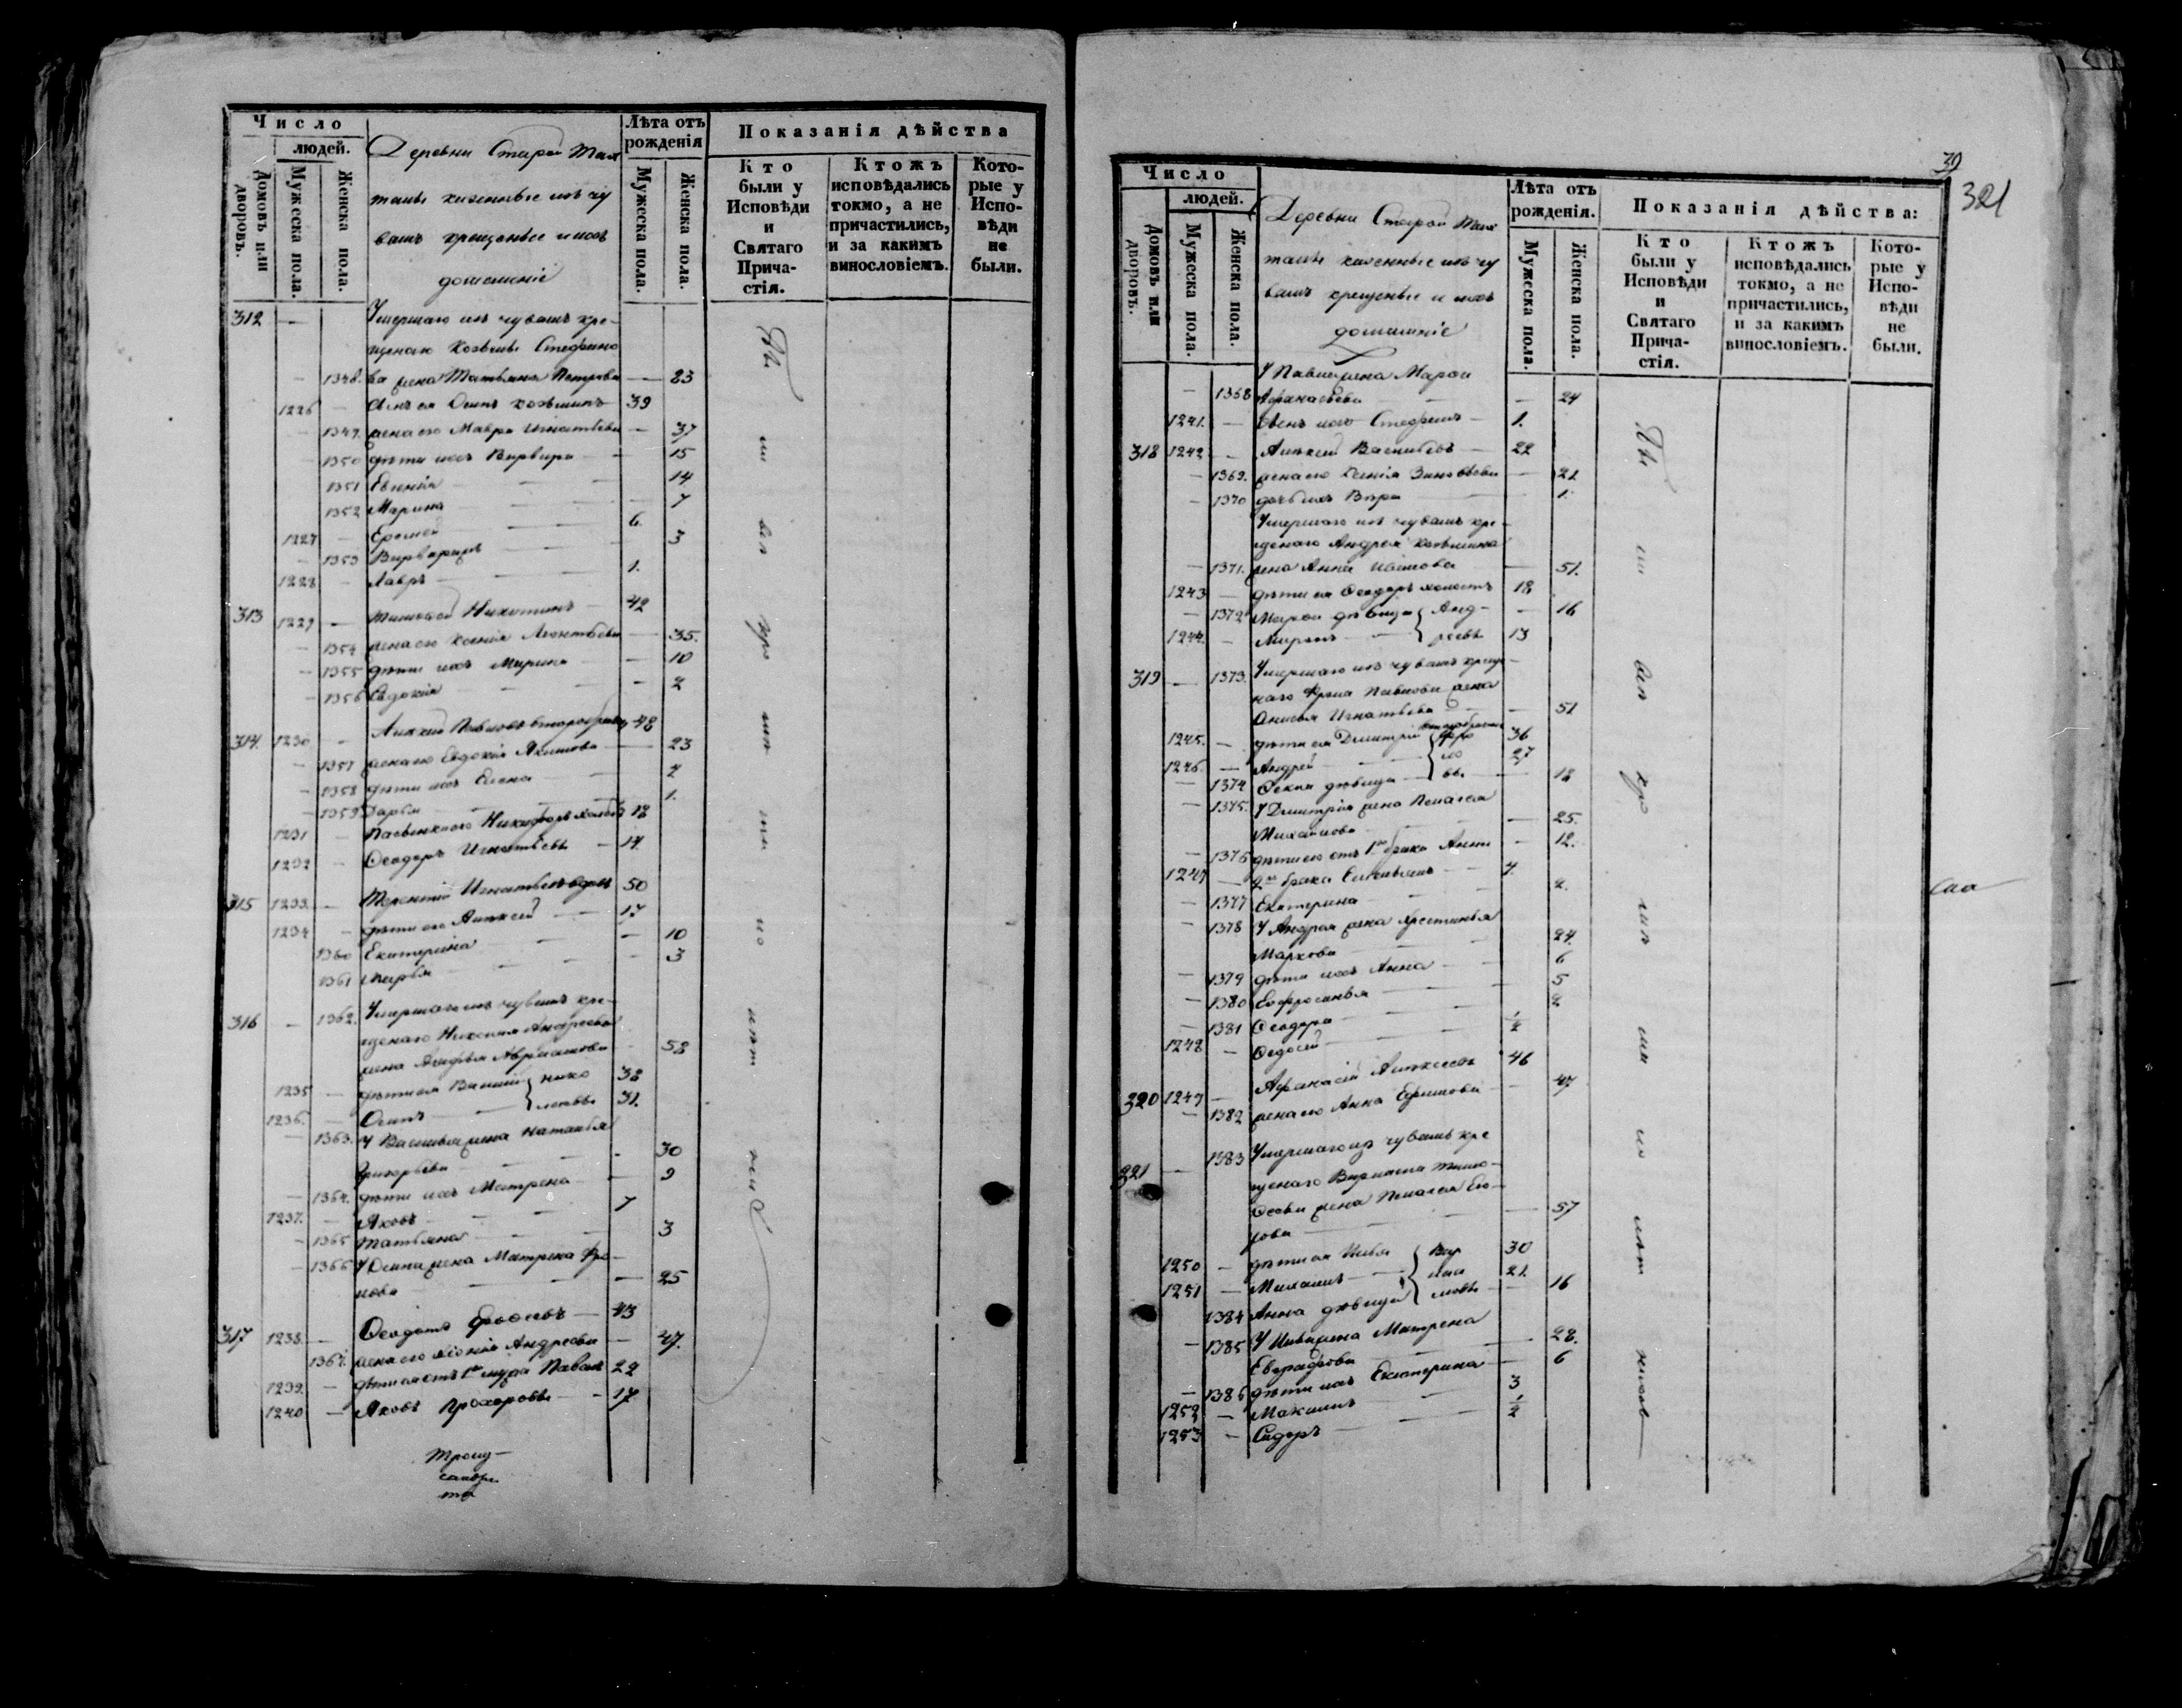 Число
людей.
Домовъ или дворовъ.
Мужеска пола.
Женска пола.
Деревни Старой
казенные изъ чу
вашъ крещеные и ихъ
домашніе
Лѣта отъ
рожденія
Мужеска пола.
Женска пола.
Показанія дѣйства
Кто
были у
Исповѣди
и
Святаго
Прича-
стія.
Ктожъ
исповѣдались
токмо, а не
причастились,
и за какимъ
винословіемъ.
Кото-
рые у
Испо-
вѣди
не
были.
312 — Умершаго изъ чувашъ кре-
щенаго Козьмы Стефано
— 1348. ва жена Татьяна Петрова — 83
1226 — сынъ ея Осипъ Козьминъ 39
— 1349. жена его Мавра Игнатьева — 37
— 1350 дѣти ихъ Варвара — 15
1351 Евгенія — 14
1352 Марина — 7
1227 — Еремей 6.
— 1353 Варвара 3
1228 — Лавръ 1.
313 1229 — Тимофей Никитинъ 42
— 1354 жена его Ксенія Леонтьева — 35.
— 1355 дѣти ихъ Марина — 10
— 1356 Евдокія — 2
314. 1230 — Алексей Павловъ 48
— 1357 жена его Евдокія Якимова — 23
— 1358 дѣти ихъ Елена 2
— 1359 Дарья 1.
1231 — Никифоръ 18
1232 — Ѳеодоръ Игнатьевъ 14.
315 1233. — Терентій Игнатьевъ вдовъ 50
1234 — дѣти его Алексей 17
1360 Екатерина — 10
1361 Марѳа — 3
316 — 1362. Умершаго изъ чувашъ кре-
щенаго Николая Андреева
жена Авраамова 58
1235 — дѣти ея Василій нико 38
1236. — Осипъ лаевы 31.
— 1363. У Василья жена Наталья
Григорьева — 30
— 1364. дѣти ихъ Матрена — 9
1237. — Яковъ 7
— 1365 Татьяна 3
— 1366 У Осипа жена Матрена
— 25
317 1238. — Ѳеодотъ 43
1367. жена его Андреева — 47.
1239. — дѣти ея отъ 1го мужа Павелъ 22
1240 — Яковъ Прохоровы 17
39
321
Число
людей.
Домовъ или дворовъ.
Мужеска пола.
Женска пола.
Деревни Старой
казенные изъ чу
вашъ крещеные и ихъ
домашніе
Лѣта отъ
рожденія.
Мужеска пола.
Женска пола.
Показанія дѣйства:
Кто
были у
Исповѣди
и
Святаго
Прича-
стія.
Ктожъ
исповѣдались
токмо, а не
причастились,
и за какимъ
винословіемъ.
Кото-
рые у
Испо-
вѣди
не
были.
У Павла жена Марѳа
— 1368 Афанасьева — 24
1241. — сынъ ихъ Стефанъ 1.
318 1242 — Алексей Васильевъ 22
— 1369. жена его Ксенія Зиновьева — 21
— 1370 дочь ихъ Вѣра — 1.
Умершаго изъ чувашъ кре-
щенаго Андрея Козьмина
— 1371. жена Анна Иванова 51.
1243 — дѣти ея Ѳеодоръ холостъ 18
— 1372. Марѳа дѣвица Анд- — 16
1244. — Миронъ реевы 13
319 — 1373. Умершаго изъ чувашъ креще-
наго Фрола Павлова жена
Анисья Игнатьева — 51
1245. — дѣти ея Дмитрій фро 36
1246. — Андрей ло 27
— 1374 Ѳекла дѣвица вы — 18
— 1375. У Дмитрія жена Пелагея
Михайлова — 25.
— 1376 дѣти его отъ 1го брака Анна — 12.
1247 — 2го брака 4.
— 1377 Екатерина 2.
— 1378 У Андрея жена Христинья
Маркова 24.
— 1379 дѣти ихъ Анна 6
— 1380 Евфросинья 5
— 1381 Ѳеодора 2
1248 — Ѳедосей ½
320 1249 — Афанасій Алексеевъ 46
— 1382 жена его Анна Ефимова — 47
321 — 1383 Умершаго изъ чувашъ кре
щенаго Варлама Тимо-
ѳеева жена Пелагея Его-
рова — 57
1250 — дѣти ея Илья Вар 30
1251 — Михаилъ ла 21.
1384 Анна дѣвица мовы — 16
— 1385 У Ильи жена Матрена
Евграфова — 28.
— 1386 дѣти ихъ Екатерина — 6
1252 — Максимъ 3
1253 — Сидоръ ½